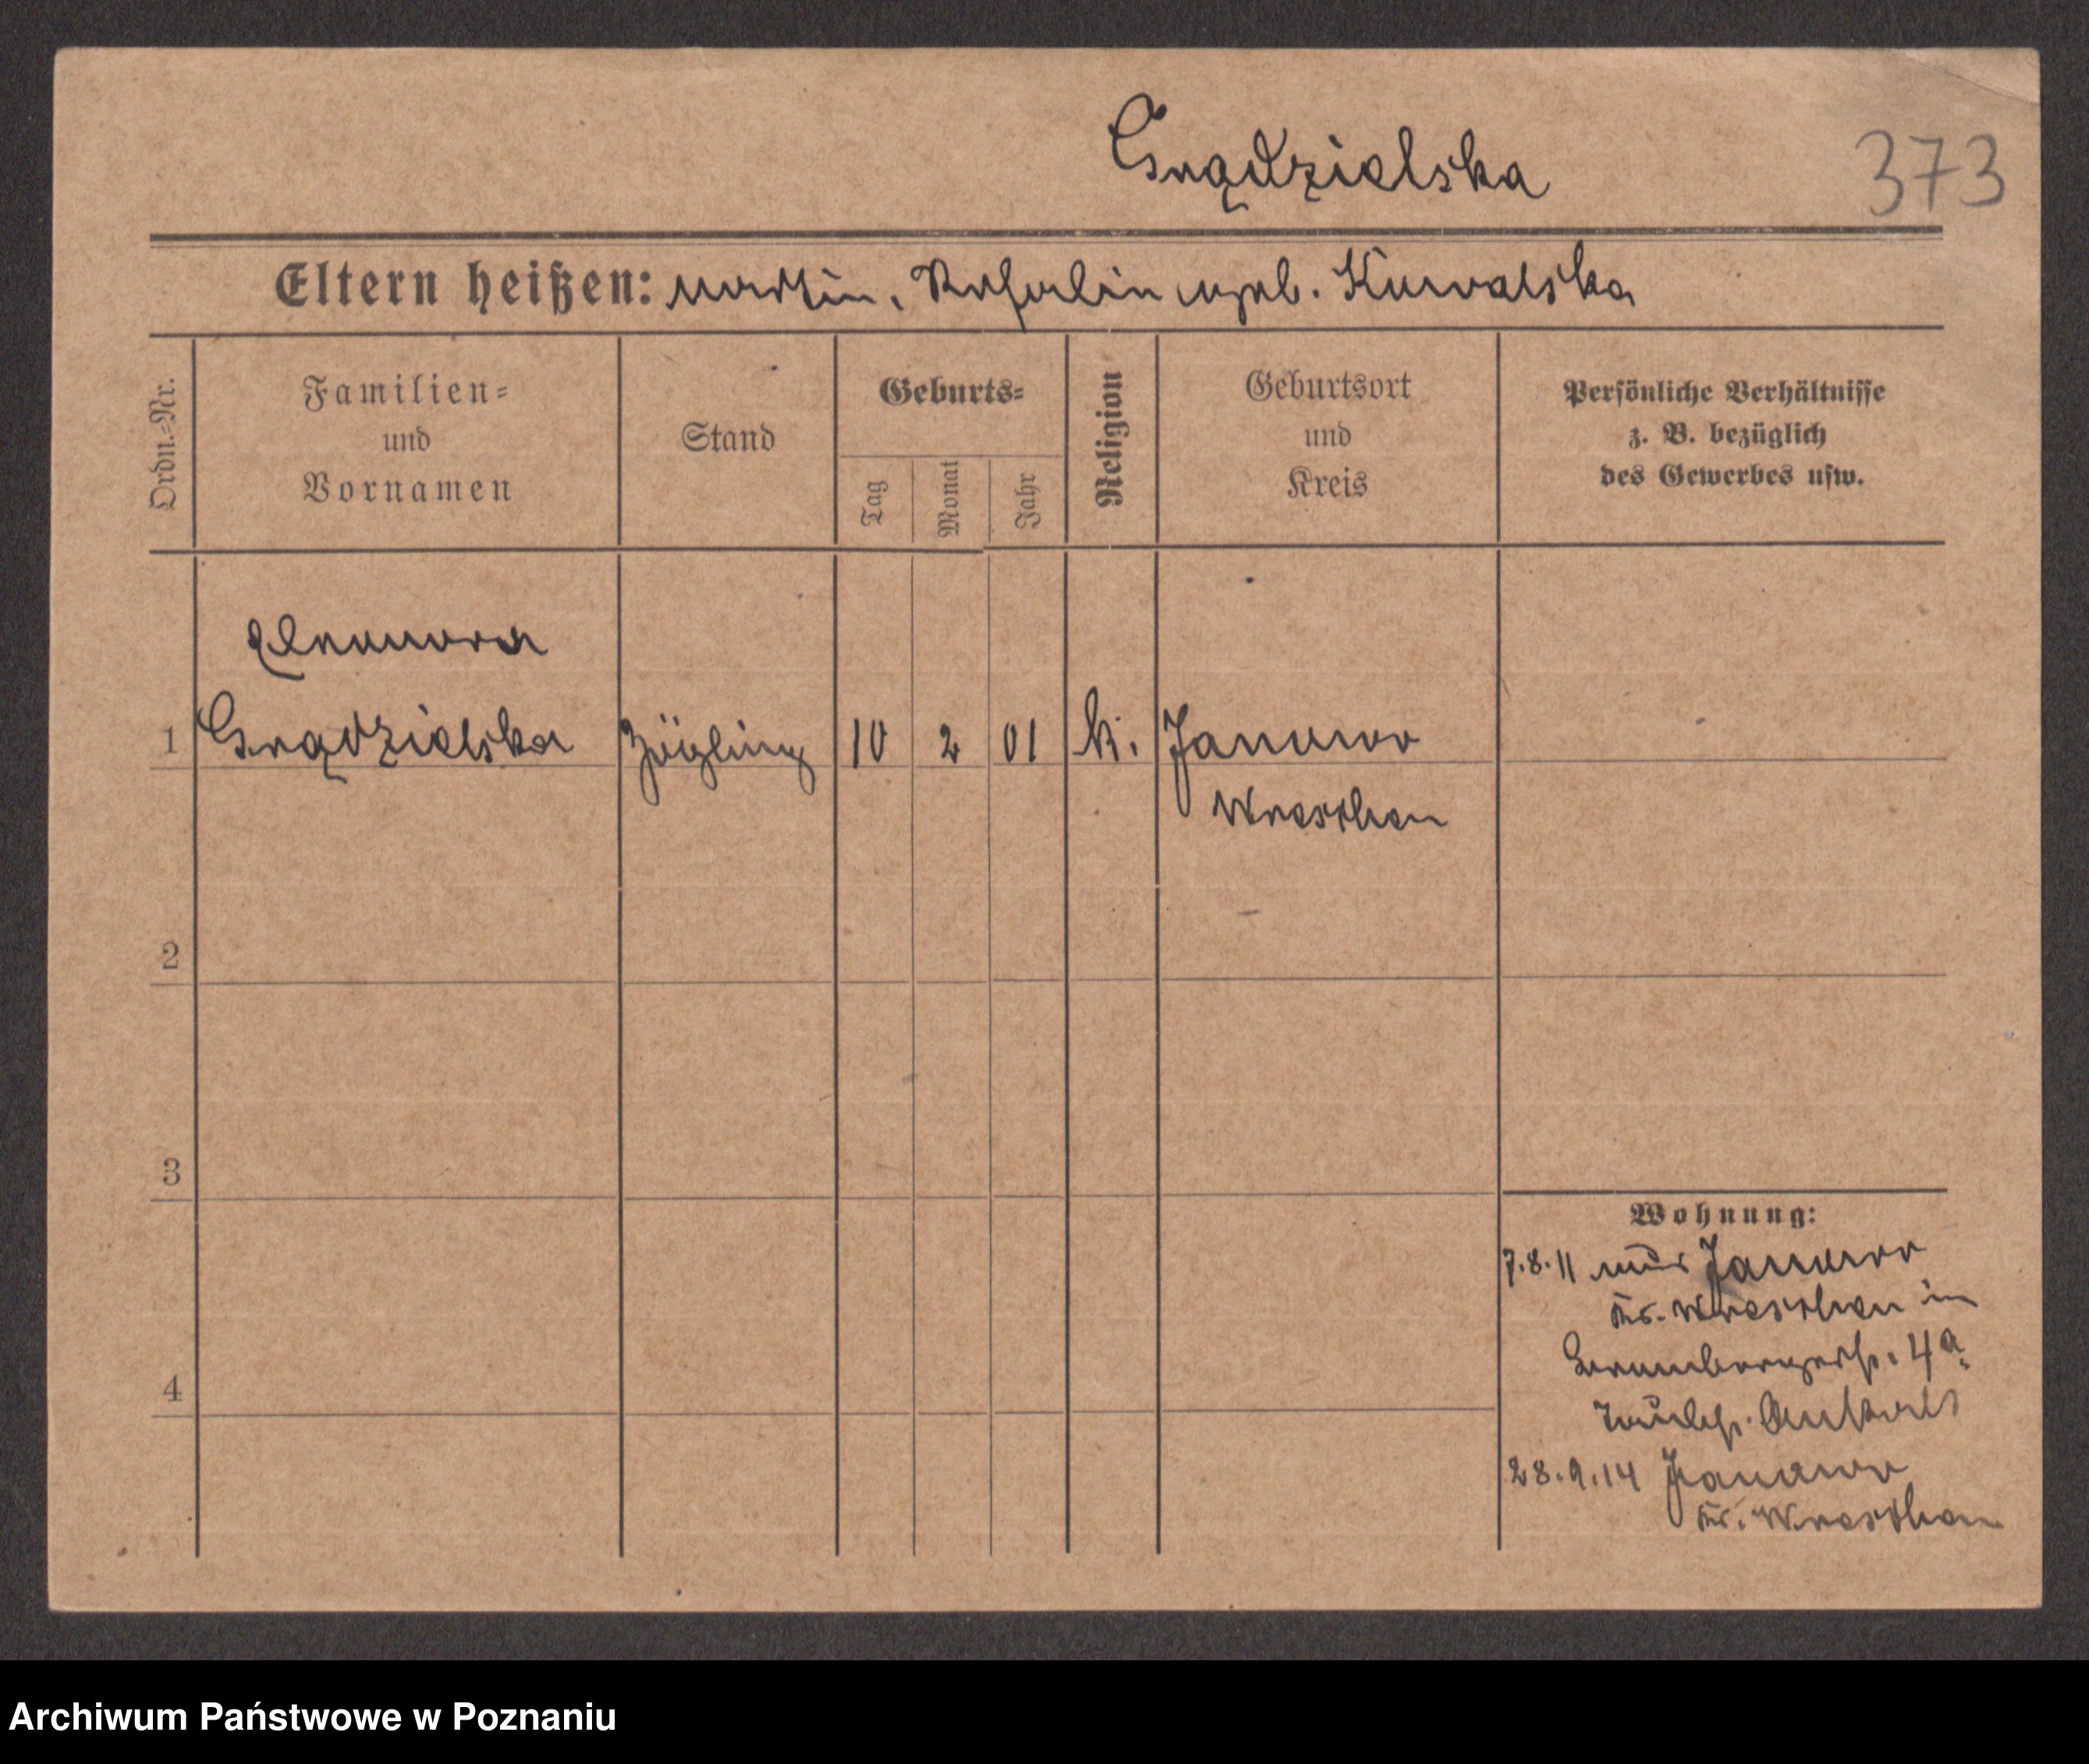 Grądzielska
373
Eltern heißen: Martin, Rosalin geb. Kowalska
Ordn.=Nr.
Familien=
und
Vornamen
Stand
Geburts=
Tag
Monat
Jahr
Religion
Geburtsort
und
Kreis
Persönliche Verhältnisse
z. B. bezüglich
des Gewerbes usw.
Eleonora
1 Grądzielska Zögling 10 2 01 k. Janowo
Wreschen
2
3
4
Wohnung:
7.8.11 aus Janowo
Kr. Wreschen in
Brombergerstr. 4a
Taubst. Anstalt
28.9.14 Janowo
Kr. Wreschen
Archiwum Państwowe w Poznaniu